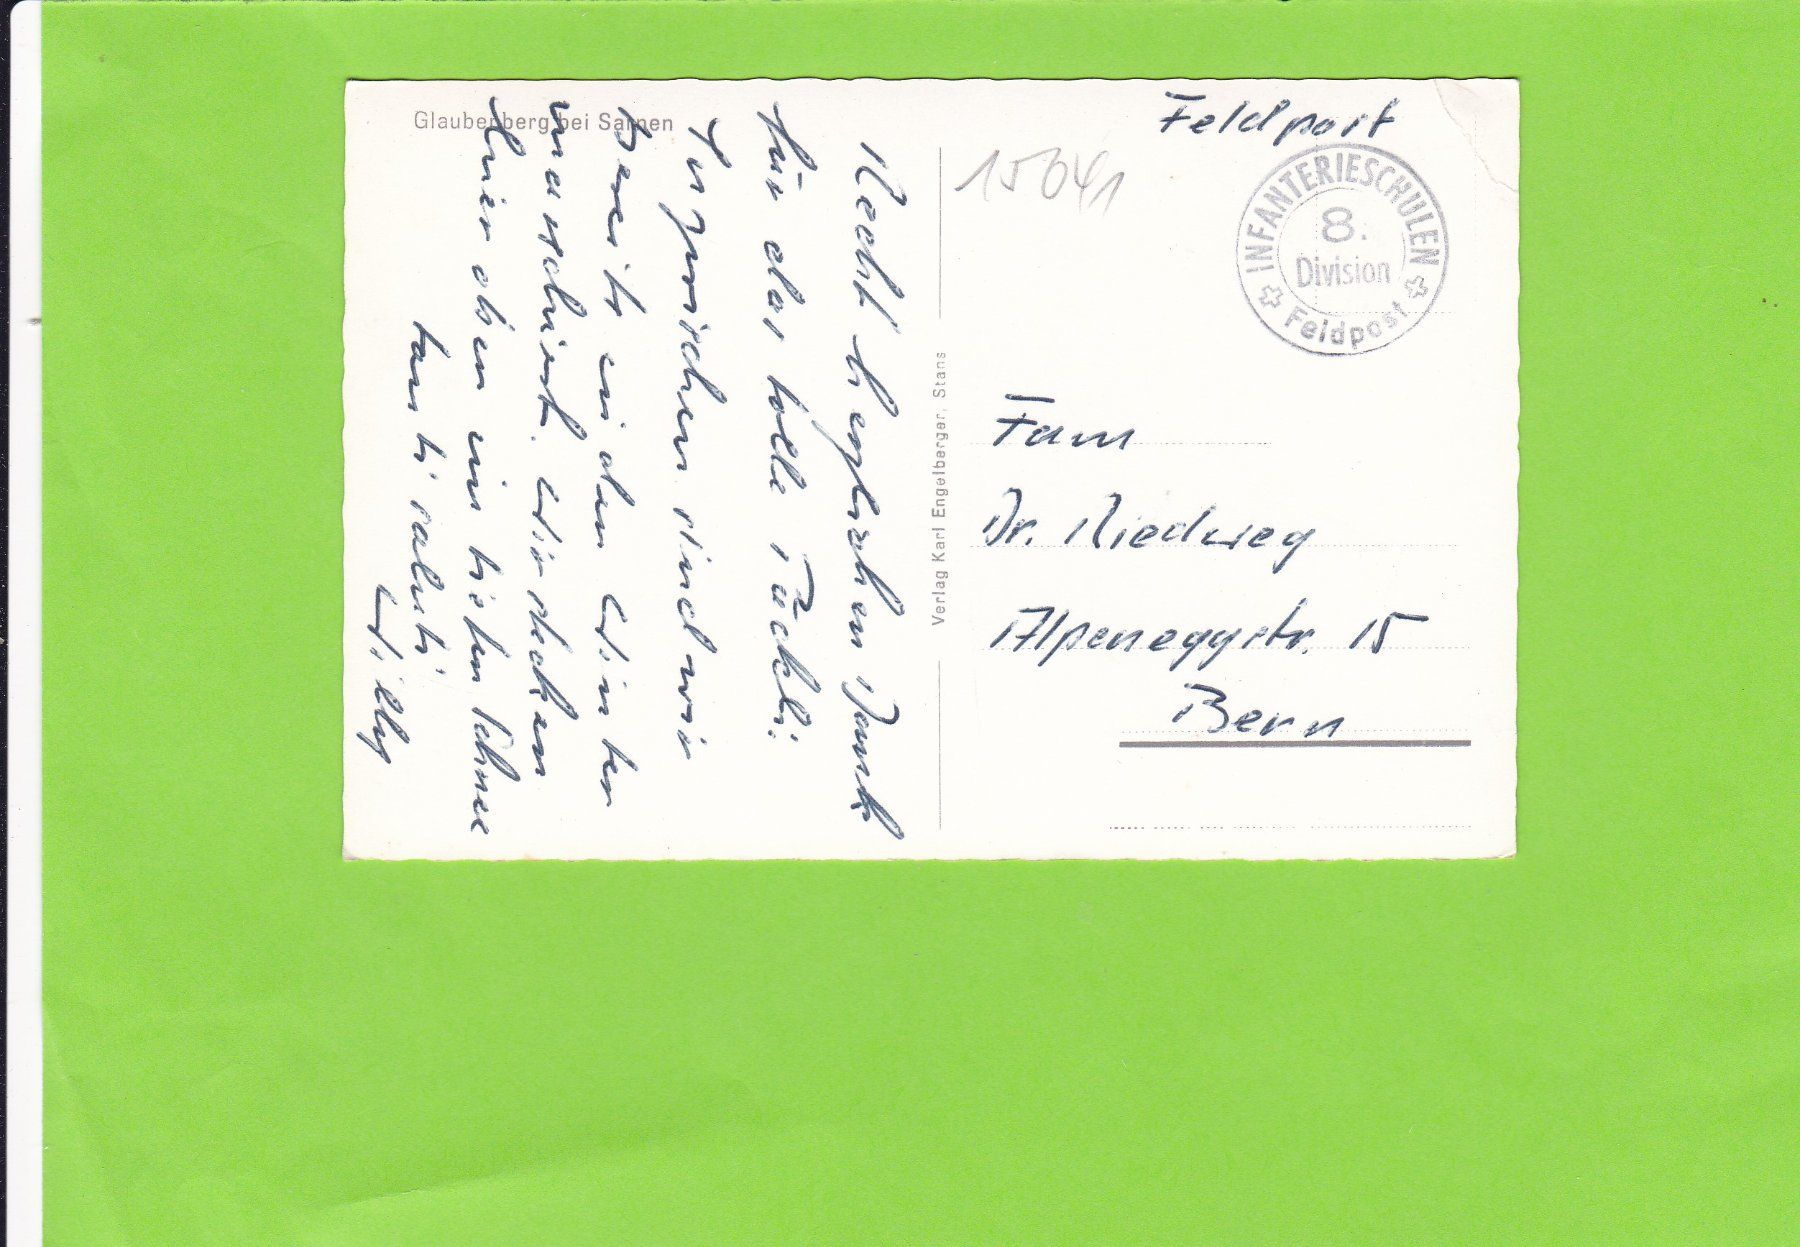 Glaubenberg bei Sarnen
Feldpost
15041
INFANTERIESCHULEN
8.
Division
Feldpost
Verlag Karl Engelberger, Stans
Fam
Dr. Riedweg
Alpeneggstr. 15
Bern
Recht herzlichen Dank
für das tolle Päckli.
Inzwischen sind wir
bereits in den Winter
marschiert. Wir stecken
hier oben im tiefen Schnee
tanti saluti
Willy